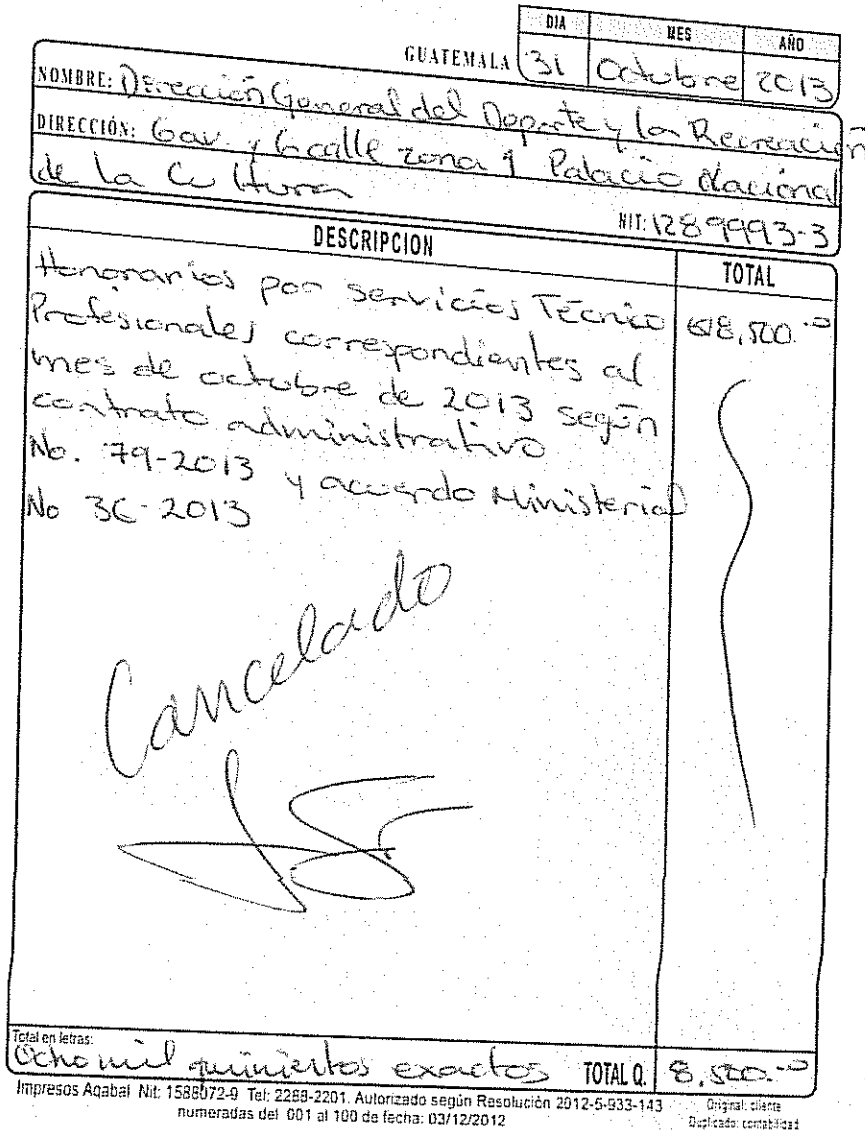 DIA MES AÑO
GUATEMALA 31 Octubre 2013
NOMBRE: Dirección General del Deporte y la Recreación
DIRECCIÓN: 6av. y 6 calle zona 1 Palacio Nacional
de la Cultura
NIT: 1289993-3
DESCRIPCION TOTAL
Honorarios por servicios Técnico
Profesionales correspondientes al
mes de octubre de 2013 según
contrato administrativo
No. 79-2013 y acuerdo Ministerial
No 36-2013
Cancelado
Total en letras:
Ocho mil quinientos exactos TOTAL Q. 8,500.-
Impresos Aqabal Nit: 1588072-9 Tel: 2288-2201. Autorizado según Resolución 2012-5-933-143
numeradas del 001 al 100 de fecha: 03/12/2012
Original: cliente
Duplicado: contabilidad